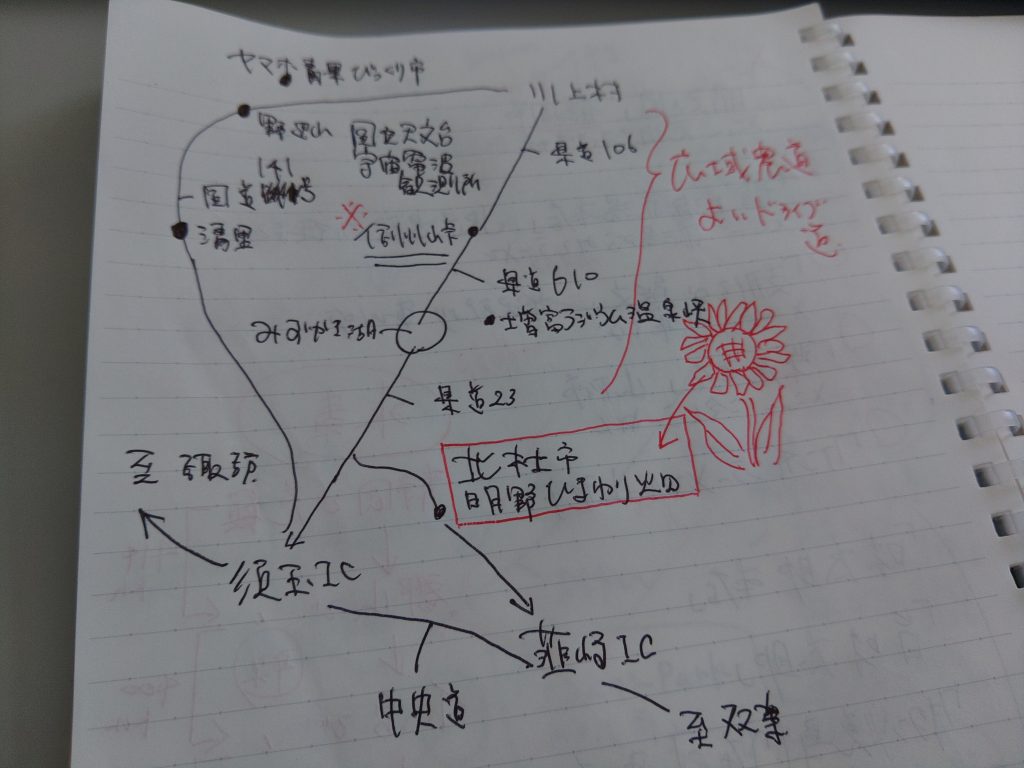 ヤマホ青果びっくり市
川上村
野辺山
国立天文台
宇宙電波
観測所
県道106
広域農道
よいドライブ
道
141
国道 号
清里
※
信州峠
県道610
みずがき湖
増富ラジウム温泉峡
県道23
至諏訪
北杜市
明野ひまわり
須玉IC
韮崎IC
中央道
至双葉